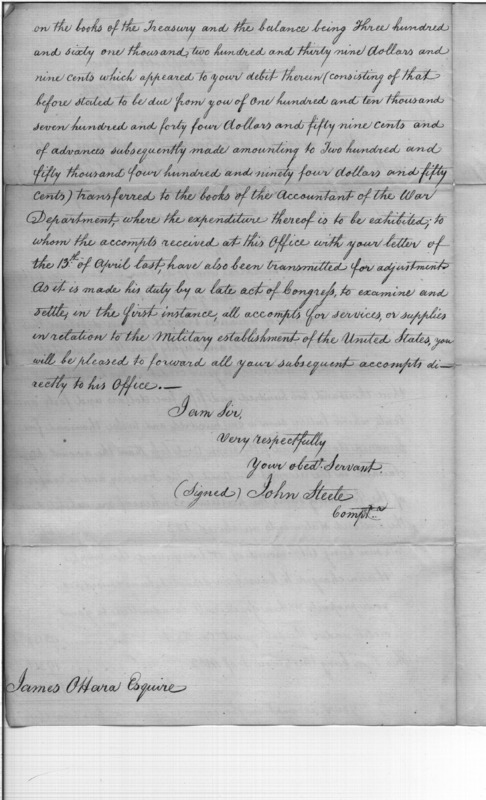 on the books of the Treasury and the balance being Three hundred
and sixty one thousand, two hundred and thirty nine dollars and
nine cents which appeared to your debit therein (consisting of that
before stated to be due from you of One hundred and ten thousand
seven hundred and forty four dollars and fifty nine cents and
of advances subsequently made amounting to Two hundred and
fifty thousand four hundred and ninety four dollars and fifty
cents) transferred to the books of the Accountant of the War
Department, where the expenditure thereof is to be exhibited; to
whom the accompts received at this Office with your letter of
the 13th of April last, have also been transmitted for adjustment.
As it is made his duty by a late act of Congress, to examine and
settle, in the first instance, all accompts for services, or supplies
in relation to the Military establishment of the United States, you
will be pleased to forward all your subsequent accompts di-
rectly to his Office.—
I am Sir,
Very respectfully
Your obedt. Servant.
(Signed) John Steele
Comptr.
James OHara Esquire